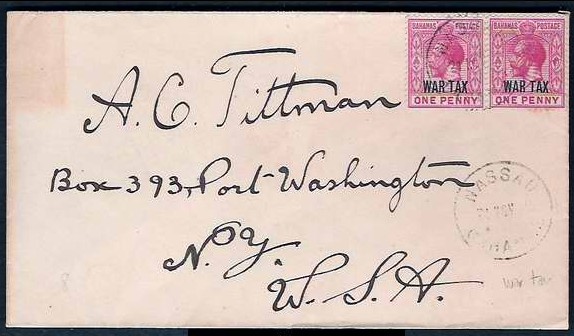 BAHAMAS POSTAGE BAHAMAS POSTAGE
WAR TAX WAR TAX
ONE PENNY ONE PENNY
A. C. Tittman
Box 393, Port Washington
N. Y.
U. S. A.
NASSAU
war tax
8